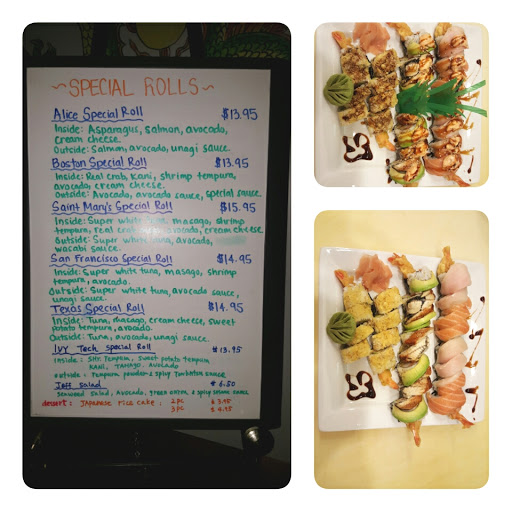 ~SPECIAL ROLLS~
Alice Special Roll $13.95
Inside: Asparagus, salmon, avocado,
cream cheese.
Outside: Salmon, avocado, unagi sauce.
Boston Special Roll $13.95
Inside: Real crab, kani, shrimp tempura,
avocado, cream cheese.
Outside: Avocado, avocado sauce, special sauce
Saint Mary's Special Roll $15.95
Inside: Super white tuna, masago, shrimp
tempura, real crab, avocado, cream cheese
Outside: Super white tuna, avocado,
wacabi sauce.
San Francisco Special Roll $14.95
Inside: Super white tuna, masago, shrimp
tempura, avocado.
Outside: Super white tuna, avocado sauce,
unagi sauce.
Texas Special Roll $14.95
Inside: Tuna, masago, cream cheese, sweet
potato tempura, avocado.
Outside: Tuna, avocado, unagi sauce.
IVY Tech Special Roll $13.95
inside: SHR. Tempura, sweet potato tempura,
KANI, TAMAGO, AVOCADO
outside: Tempura powder & spicy sauce
Jeff salad $6.50
Seaweed Salad, Avocado, green onion, & spicy sesame sauce
dessert: JAPANESE rice cake: 2pc $3.95
3pc $4.95